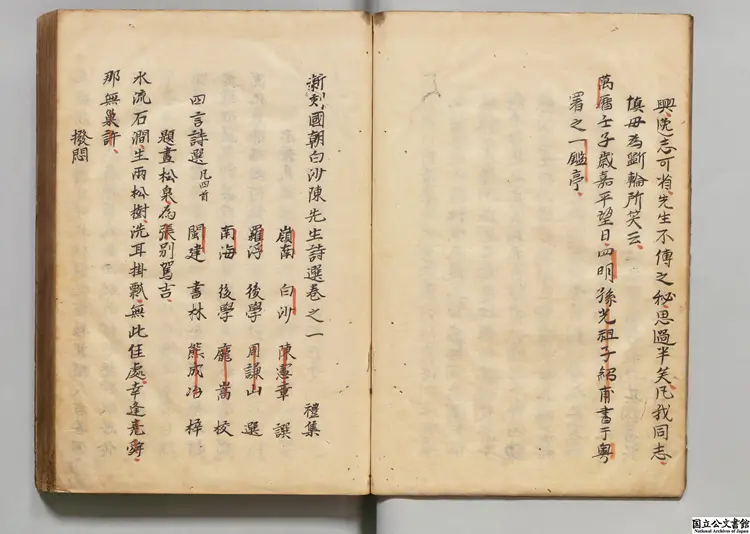 興晩志可省先生不傳之秘思過半矣凡我同志
慎毋為斵輪所笑云
萬曆壬子歲嘉平望日四明孫光祖子紹甫書于粵
署之一鑑亭
新刻國朝白沙陳先生詩選卷之一 禮集
嶺南 白沙 陳憲章 譔
羅浮 後學 周謙山 選
南海 後學 龐嵩 校
閩建 書林 熊成冶 梓
四言詩選 凡四首
題畫松泉為張別駕吉
水流石澗生兩松樹洗耳掛瓢無此佳處幸逢堯舜
那無巢許
撥悶
国立公文書館
National Archives of Japan